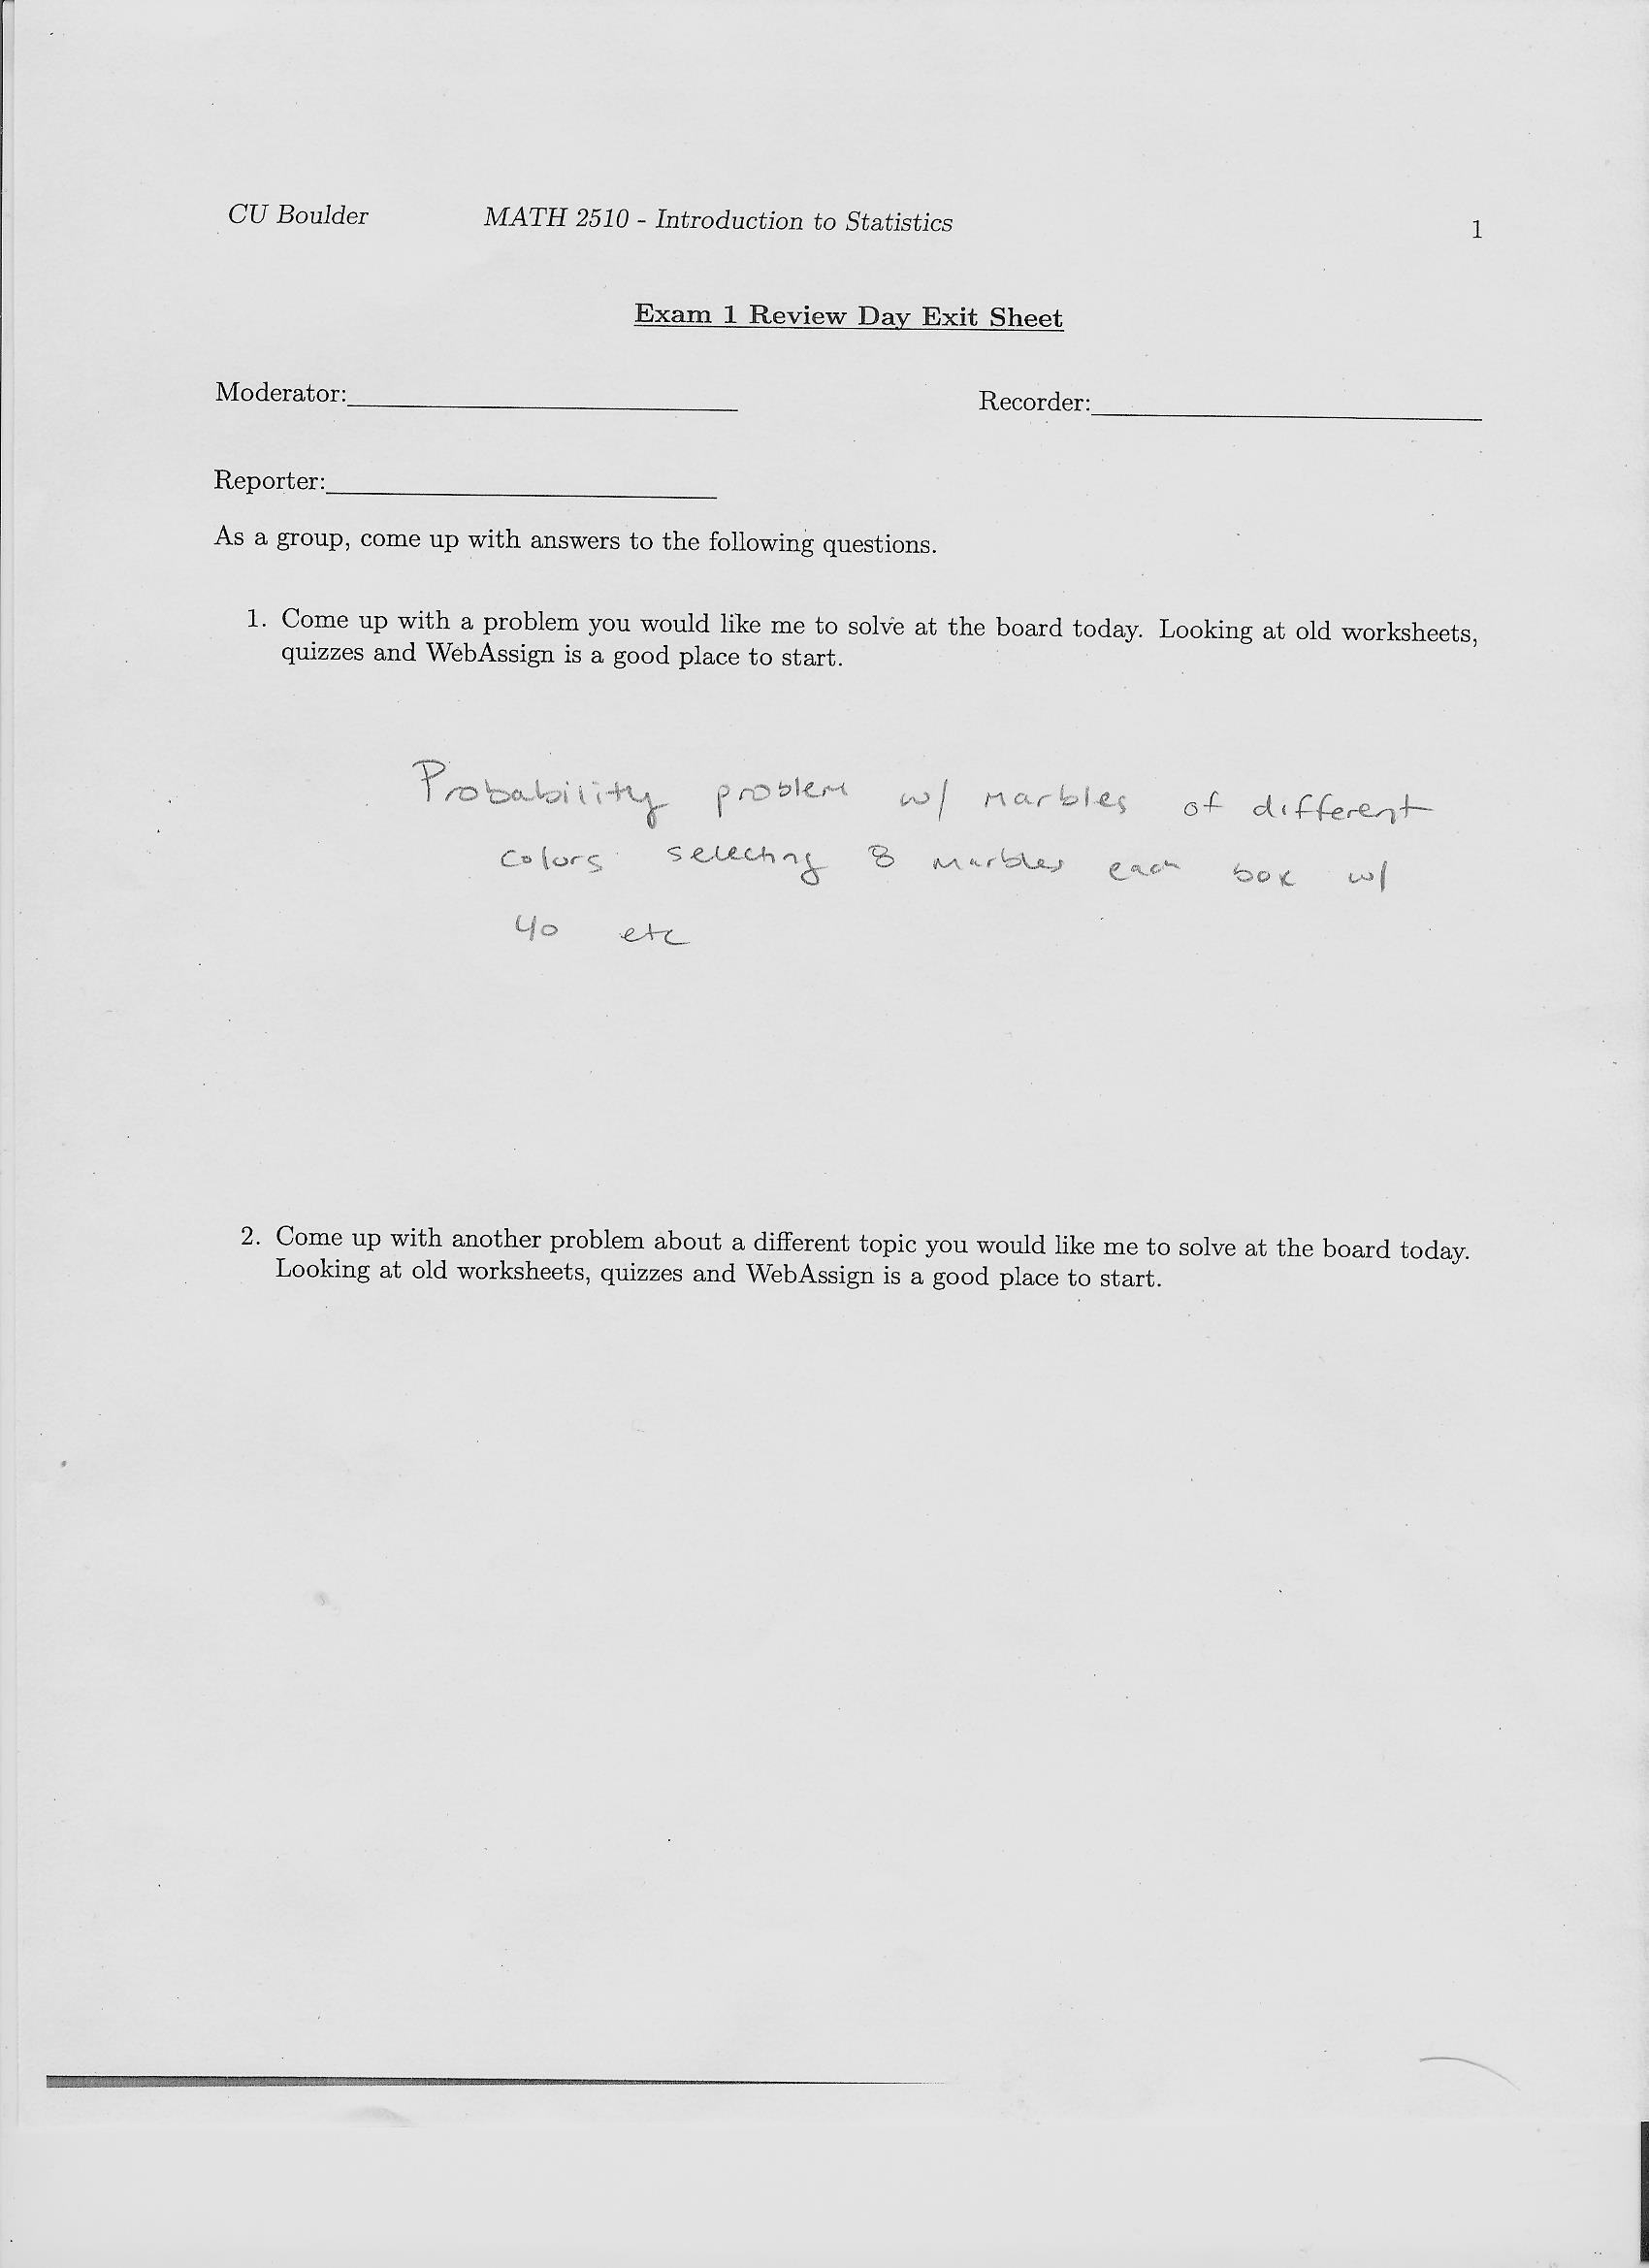 CU Boulder MATH 2510 - Introduction to Statistics 1
Exam 1 Review Day Exit Sheet
Moderator: Recorder:
Reporter:
As a group, come up with answers to the following questions.
1. Come up with a problem you would like me to solve at the board today. Looking at old worksheets,
quizzes and WebAssign is a good place to start.
Probability problem w/ marbles of different
colors selecting 8 marbles each box w/
40 etc
2. Come up with another problem about a different topic you would like me to solve at the board today.
Looking at old worksheets, quizzes and WebAssign is a good place to start.